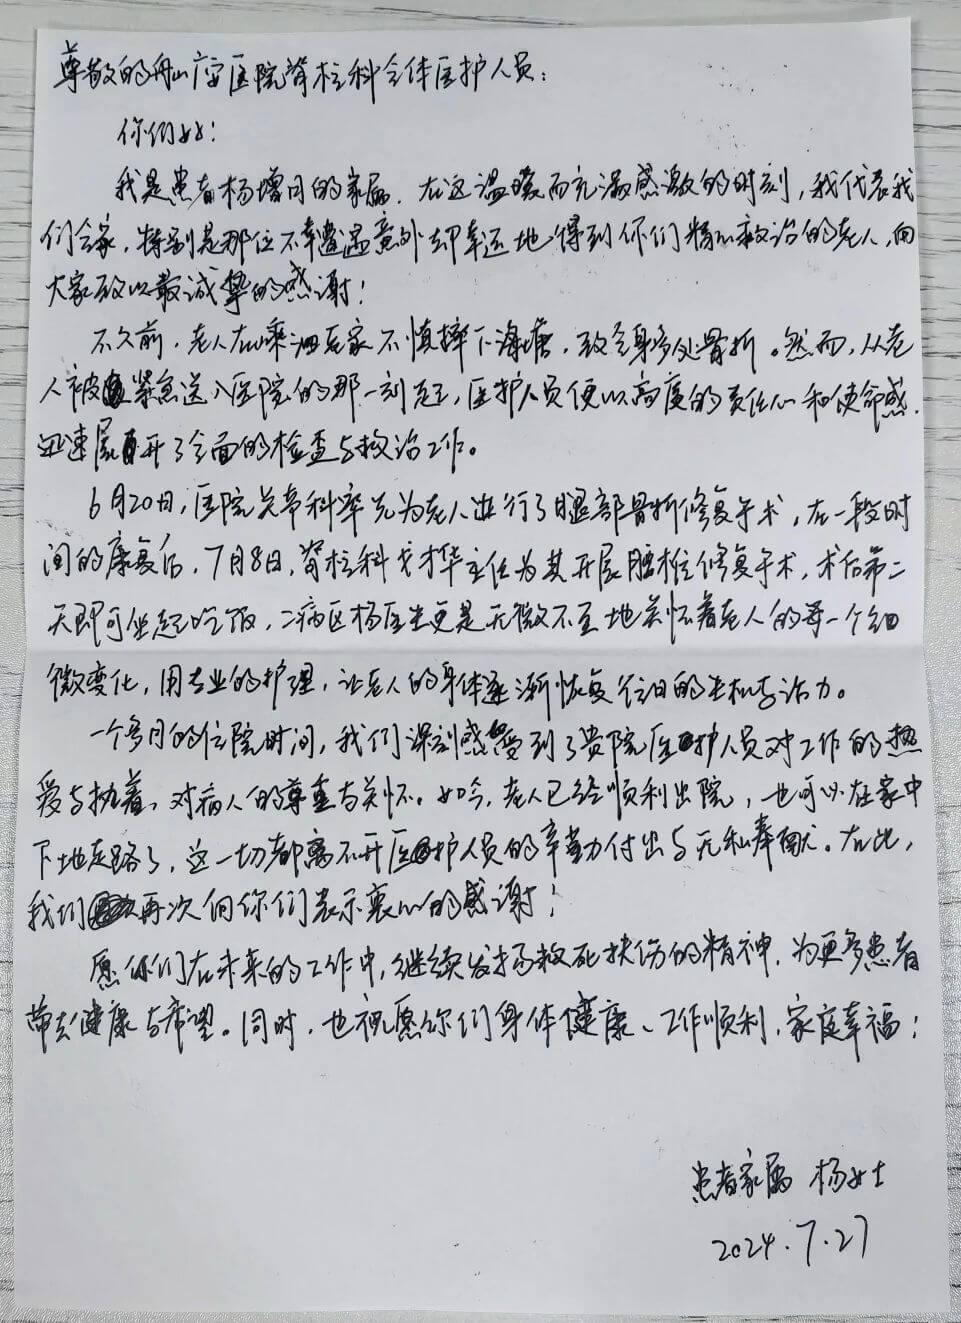 尊敬的舟山广安医院脊柱科全体医护人员：
你们好！
我是患者杨增月的家属．在这温暖而充满感激的时刻，我代表我
们全家，特别是那位不幸遭遇意外却幸运地得到你们精心救治的老人，向
大家致以最诚挚的感谢！
不久前，老人在嵊泗老家不慎摔下海塘，致全身多处骨折。然而，从老
人被紧急送入医院的那一刻起，医护人员便以高度的责任心和使命感．
迅速展开了全面的检查与救治工作。
6月20日，医院关节科率先为老人进行了腿部骨折修复手术，在一段时
间的康复后，7月8日，脊柱科戈才华主任为其开展腰椎修复手术，术后第二
天即可坐起吃饭，二病区杨医生更是无微不至地关怀着老人的每一个细
微变化，用专业的护理，让老人的身体逐渐恢复往日的生机与活力。
一个多月的住院时间，我们深刻感受到了贵院医护人员对工作的热
爱与执着、对病人的尊重与关怀。如今，老人已经顺利出院，也可以在家中
下地走路了，这一切都离不开医护人员的辛勤付出与无私奉献。在此，
我们再次向你们表示衷心的感谢！
愿你们在未来的工作中，继续发扬救死扶伤的精神．为更多患者
带去健康与希望。同时，也祝愿你们身体健康、工作顺利，家庭幸福！
患者家属 杨女士
2024.7.27